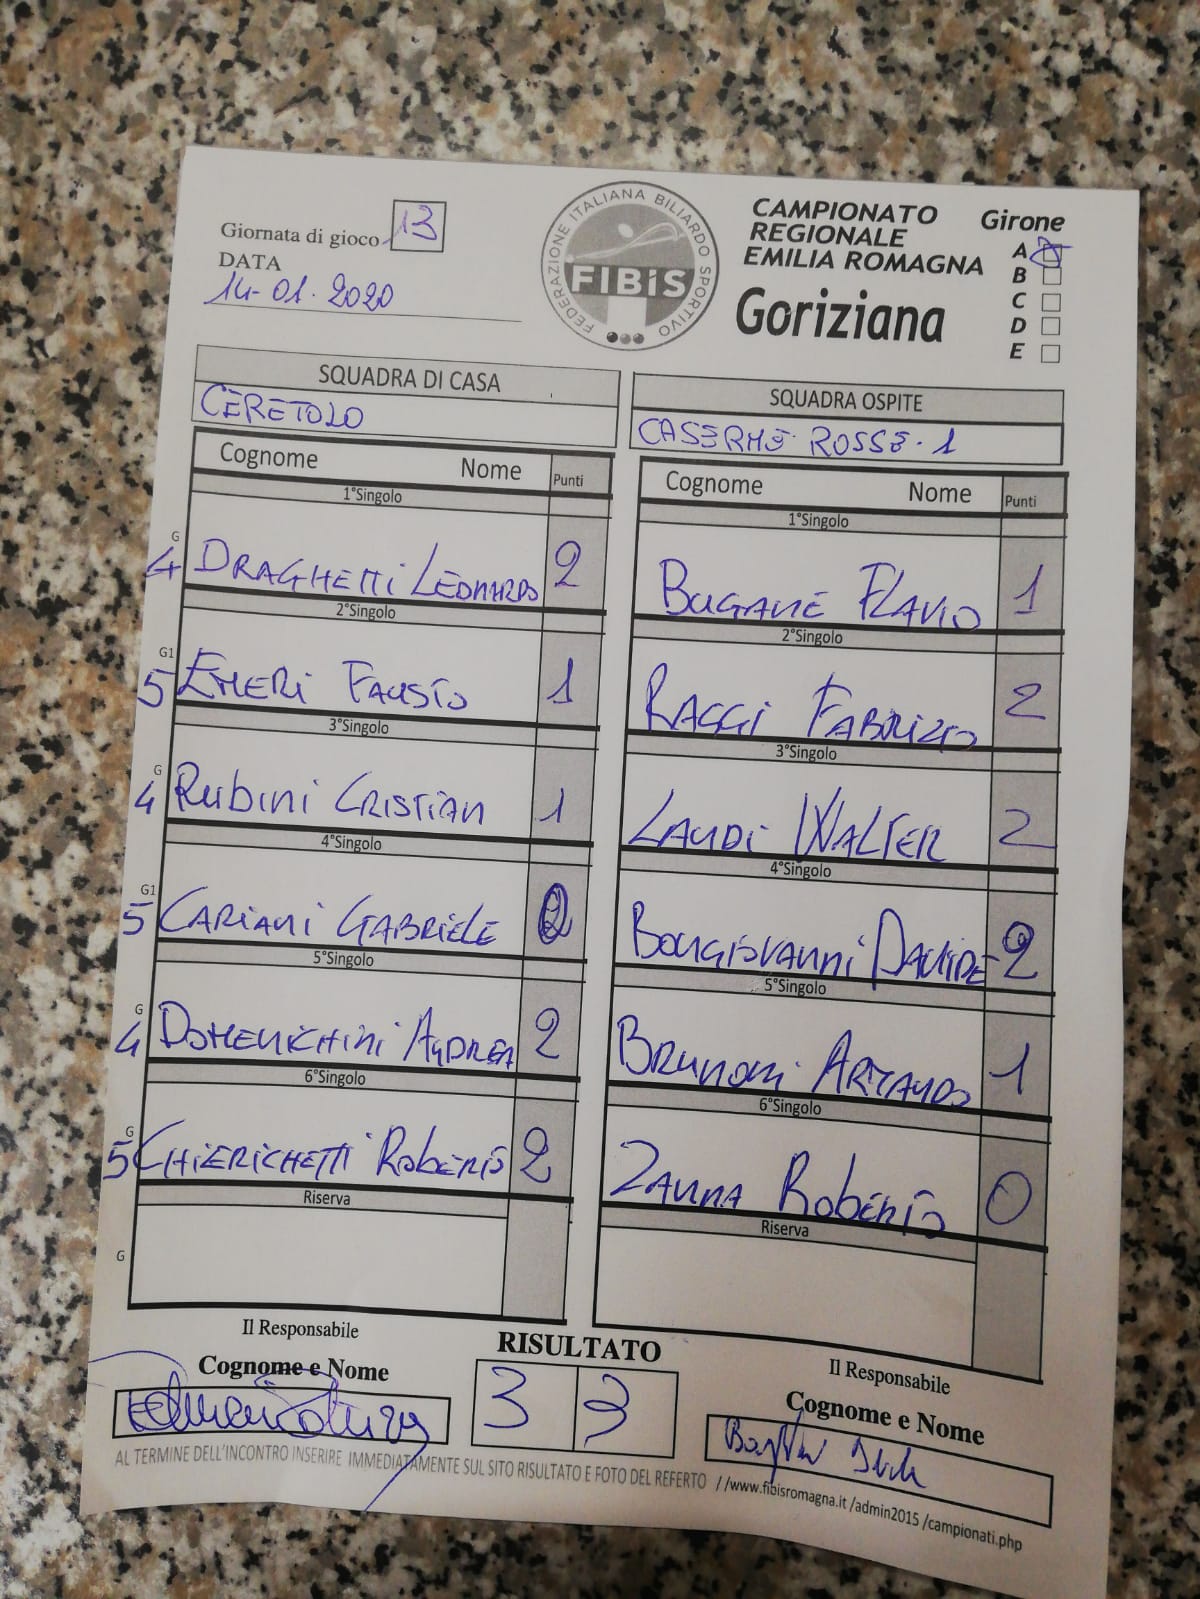 Giornata di gioco 13
DATA
14-01-2020
FEDERAZIONE ITALIANA BILIARDO SPORTIVO
FIBiS
CAMPIONATO
REGIONALE
EMILIA ROMAGNA
Goriziana
Girone
A
B
C
D
E
SQUADRA DI CASA
CERETOLO
Cognome Nome Punti
1°Singolo
G
4 DRAGHETTI LEONARDO 2
2°Singolo
G1
5 EMERI FAUSTO 1
3°Singolo
G
4 RUBINI CRISTIAN 1
4°Singolo
G1
5 CARIANI GABRIELE
5°Singolo
G
4 DOMENICHINI ANDREA 2
6°Singolo
G
5 CHIERICHETTI ROBERTO 2
Riserva
G
SQUADRA OSPITE
CASERME ROSSE-1
Cognome Nome Punti
1°Singolo
BUGANE FLAVIO 1
2°Singolo
RAGGI FABRIZIO 2
3°Singolo
LAUDI WALTER 2
4°Singolo
BONGIOVANNI DAVIDE 2
5°Singolo
BRUNONI ARMANDO 1
6°Singolo
ZANNA ROBERTO 0
Riserva
Il Responsabile
Cognome e Nome
RISULTATO
3 3
Il Responsabile
Cognome e Nome
AL TERMINE DELL'INCONTRO INSERIRE IMMEDIATAMENTE SUL SITO RISULTATO E FOTO DEL REFERTO //www.fibisromagna.it /admin2015 /campionati.php